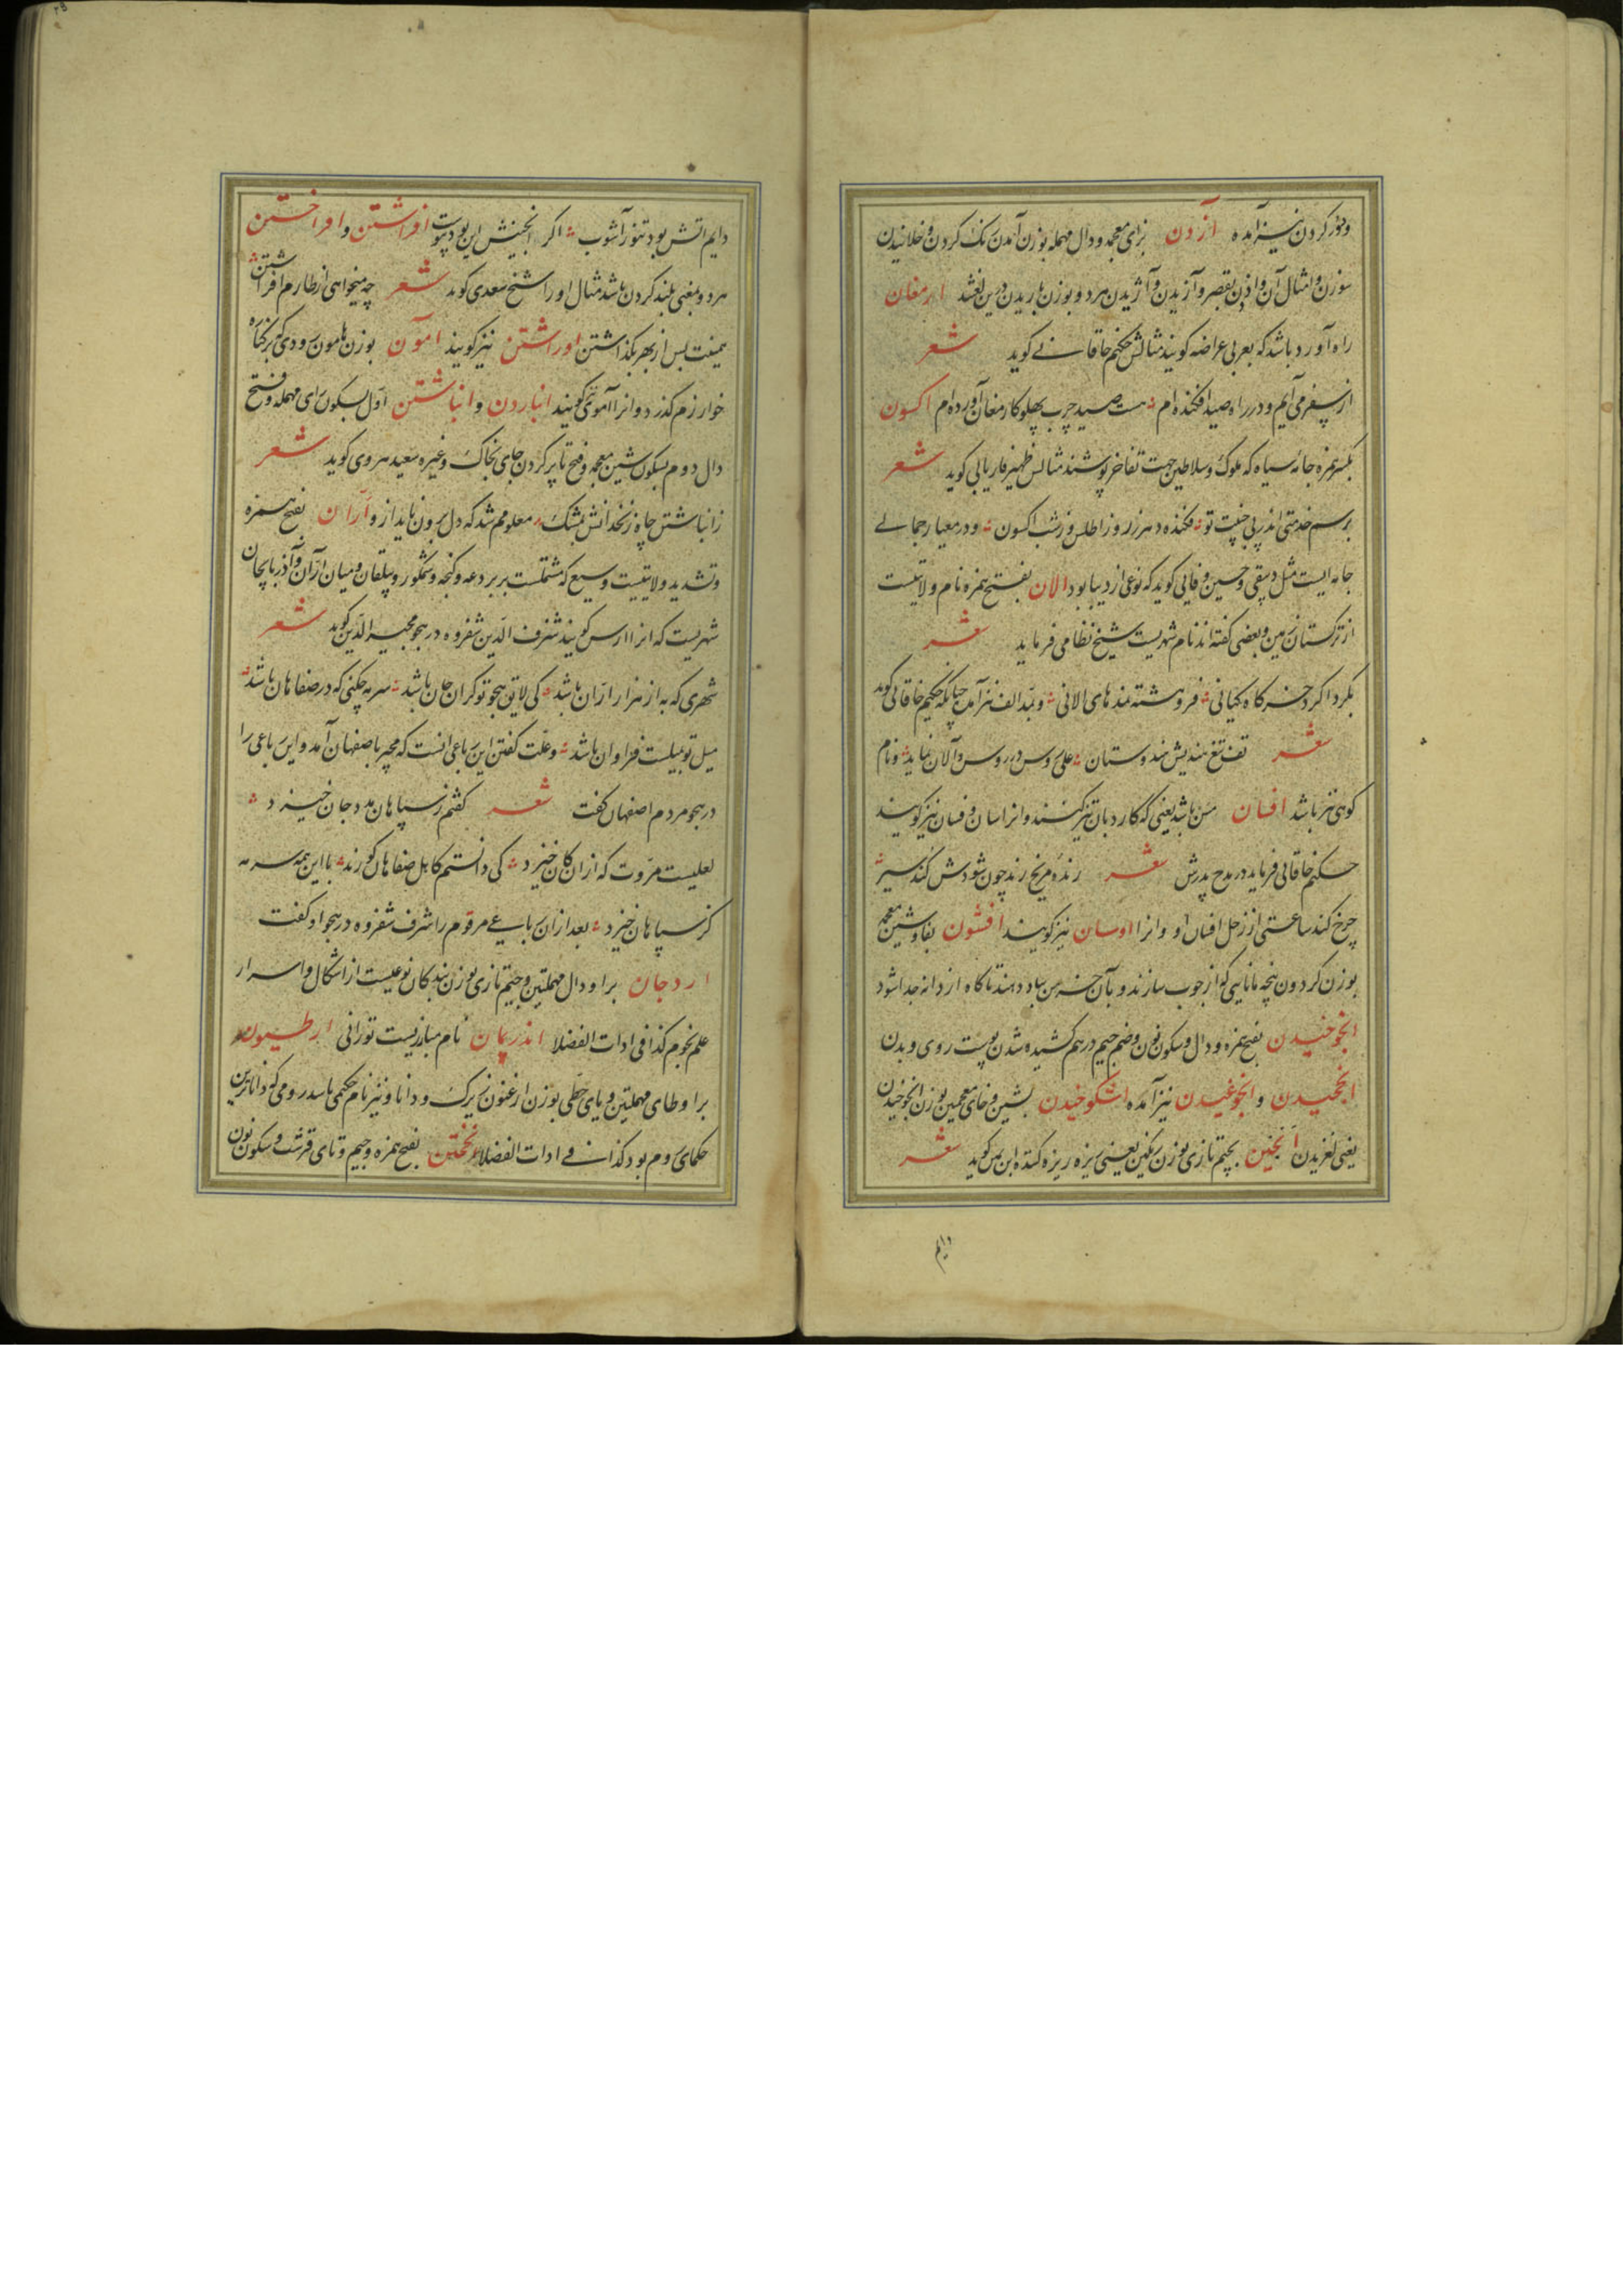 و تیز کردن نیز آمده آزدن بزای معجمه و دال مهمله بوزن آمدن رنک کردن و خلانیدن
سوزن و امثال آن و اژدن بقصر و آزیدن و آژیدن هر دو بوزن باریدن درین لغتند ارمغان
راه آورد باشد که بعربی عراضه کویند مثالش حکیم خاقانی کوید شعر
از سفر می آیم و در راه صید افکنده ام هست صید چرب پهلو کارمغان آورده ام اکسون
بکسر همزه جامه سیاه که ملوک و سلاطین جهت تفاخر پوشند مثالش ظهیر فاریابی کوید شعر
برسم خدمتی اندر پی جنیبت تو فکنده هر زر روز اطلس وز شب اکسون و در معیار جمالی
جامه ایست مثل دیبقی و حسین وفایی کوید که نوعی از دیبا بود الان بفتح همزه نام ولایتیست
از ترکستان زمین و بعضی گفته اند نام شهریست شیخ نظامی فرماید شعر
بکرداکرد خرکاه کیانی فروهشته نمدهای الانی و بمد الف نیز آمده چنانکه حکیم خاقانی کوید
شعر تف تیغ هندیش هندوستان علی روس در روس و آلان نماید و نام
کوهی نیز باشد افسان مسن باشد یعنی که کارد بان تیز کنند و انرا سان و فسان نیز کویند
حکیم خاقانی فرماید در مدح پدرش شعر رنده مریخ رند چون شودش کند سیر
چرخ کند ساعتی از زحل افسان او و انرا اوسان نیز کویند افشون بفا و شین معجمه
بوزن کردون پنجه مانندی که از چوب سازند و بآن خرمن بباد دهند تا کاه از دانه جدا شود
انجوخیدن بفتح همزه و دال و سکون نون و ضم جیم در هم کشیده شدن پوست روی و بدن
انجخیدن و انجوغیدن نیز آمده اشکوخیدن بشین و خای معجمین بوزن انجوخیدن
یعنی لغزیدن انجین بجیم تازی بوزن رنکین یعنی ریزه ریزه کننده ابن یمین کوید شعر
دایم
دایم اتش بود تنور آشوب اکر انجینش این بود پیوست افراشتن و افراختن
هر دو بمعنی بلند کردن باشد مثال او را شیخ سعدی کوید شعر چه میخواهی از طارم افراشتن
همینت بس از بهر بکذاشتن اوراشتن نیز کویند آمون بوزن هامون رودی که بر کناره
خوارزم کذرد و انرا آموی نیز کویند انباردن و انباشتن اول بسکون رای مهمله و فتح
دال دوم بسکون شین معجمه و فتح تا پر کردن جای بخاک و غیره سعید هروی کوید شعر
ز انباشتن چاه زنخدانش بمشک معلومم شد که دل برون ناید از و آران بفتح همزه
و تشدید ولایتیست وسیع که مشتملست بر بردعه و کنجه و شمکور و بیلقان و میان آران و آذربایجان
شهریست که انرا ارس کویند شرف الدین شفروه در هجو مجیر الدین کوید شعر
شهری که به از هزار اران باشد کی لایق هجو تو کران جان باشد سرمه چکنی که در صفاهان باشد
میل تو بمیلست فراوان باشد و علت کفتن این رباعی انست که مجیر باصفهان آمد و این رباعی را
در هجو مردم اصفهان کفت شعر کفتم ز سپاهان مدد جان خیزد
لعلیست مروت که از ان کان خیزد کی دانستم کاهل صفاهان کورند با این همه سرمه
کز سپاهان خیزد بعد ازان رباعی مرقوم را شرف شفروه در هجو او کفت
اردجان برا و دال مهملتین و جیم تازی بوزن بندکان نوعیست از اشکال و اسرار
علم نجوم کذا فی ادات الفضلا اندریمان نام مبارزیست تورانی ارطیون
برا و طای مهملتین و یای حطی بوزن ارغنون زیرک و دانا و نیز نام حکیمی باشد رومی که داناترین
حکمای روم بود کذا فی ادات الفضلا بفتح همزه و جیم و تای قرشت و سکون نون